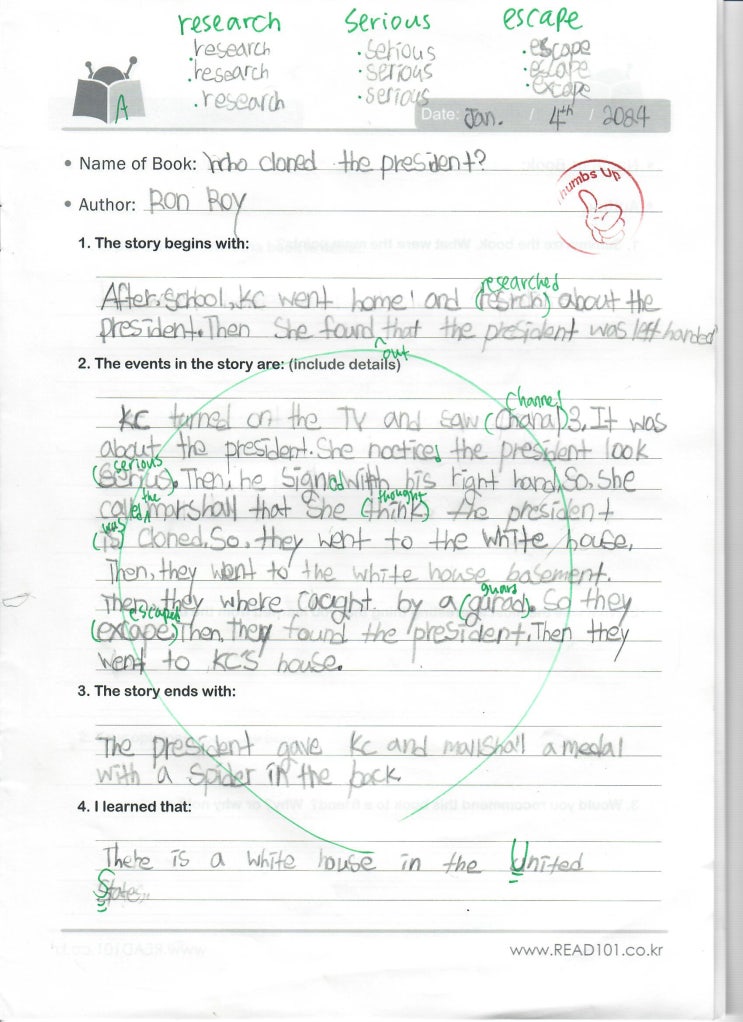 research serious escape
.research .serious .escape
.research .serious .escape
.research .serious .excape
A
Date: Jan. / 4th / 2084
Thumbs Up
• Name of Book: Who cloned the president?
• Author: Ron Roy
1. The story begins with:
researched
After, school, KC went home and (resrch) about the
president. Then she found that the president was left handed
out
2. The events in the story are: (include details)
Channel
KC turned on the TV and saw (Chanal) 3. It was
about the president. She noctices the president look
serious
(serius). Then, he signed with his right hand. So, she
the thought
called marshall that she (think) the president
was
(is) cloned. So, they went to the white house.
Then, they went to the white house basement.
guard
Then they where caught by a (gurad). So they
escaped
(excape) Then, they found the president. Then they
went to KC's house.
3. The story ends with:
The president gave KC and marshall a medal
with a spider in the back.
4. I learned that:
There is a white house in the United
States.
www.READ101.co.kr